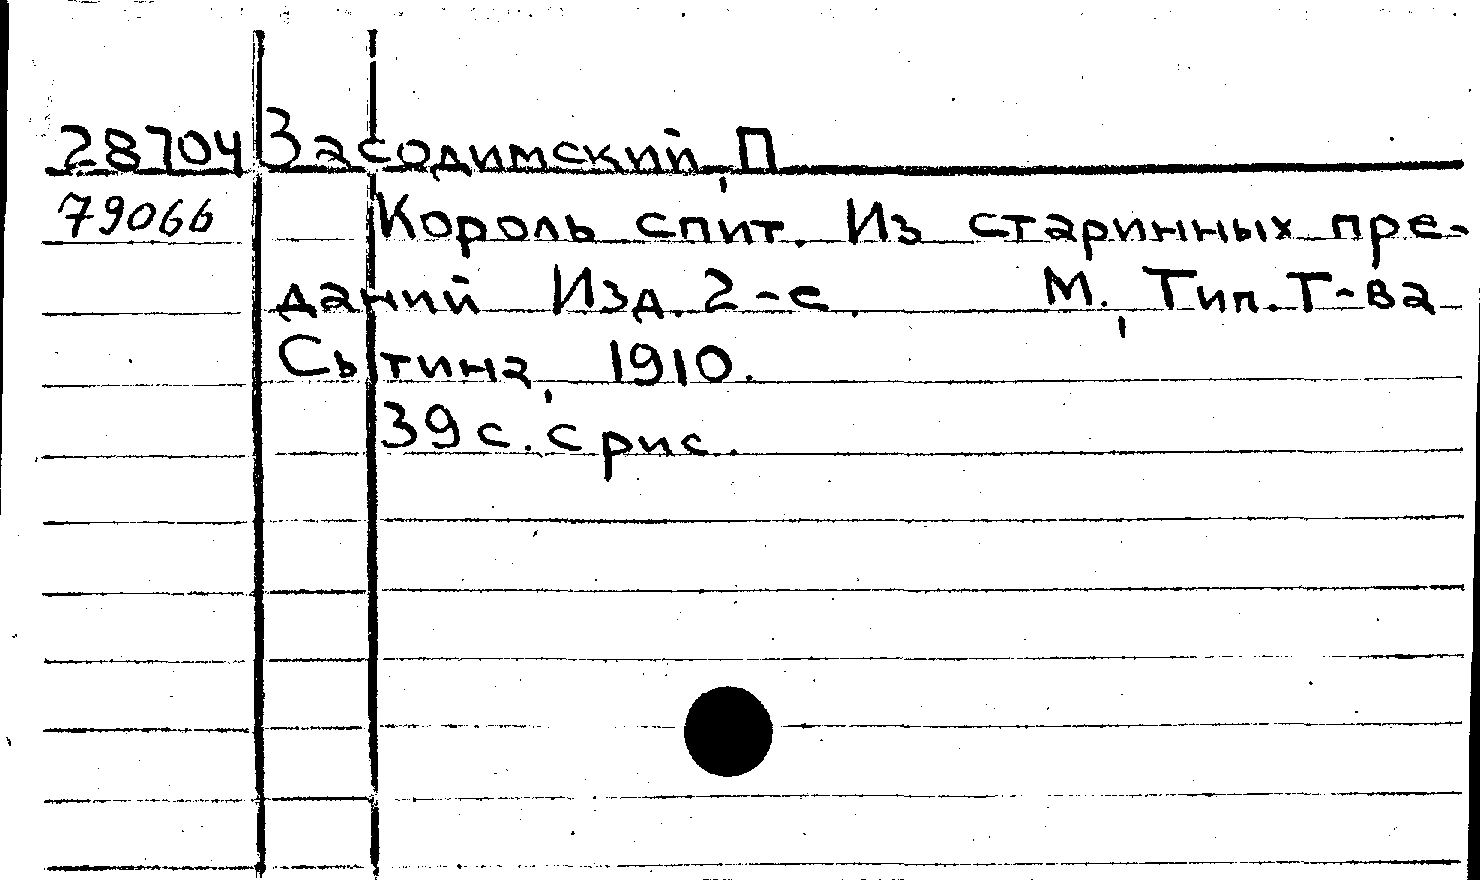 28704 Засодимский, П
79066 Король спит. Из старинных пре-
даний Изд. 2-е. М., Тип. Т-ва
Сытина, 1910.
39 с. с рис.